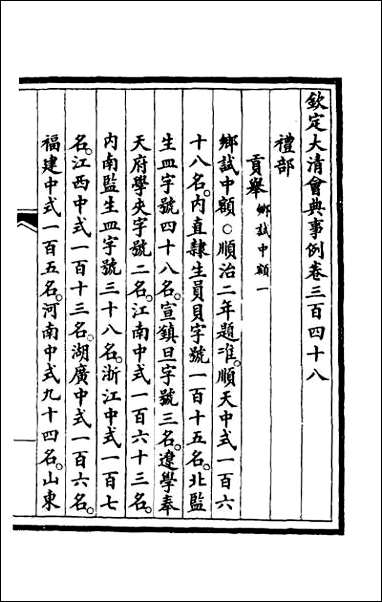 欽定大清會典事例卷三百四十八
禮部
貢舉 鄉試中額一
鄉試中額○順治二年題准。順天中式一百六
十八名。內直隸生員貝字號一百十五名。北監
生皿字號四十八名。宣鎮旦字號三名。遼學奉
天府學夾字號二名。江南中式一百六十三名。
內南監生皿字號三十八名。浙江中式一百七
名。江西中式一百十三名。湖廣中式一百六名。
福建中式一百五名。河南中式九十四名。山東